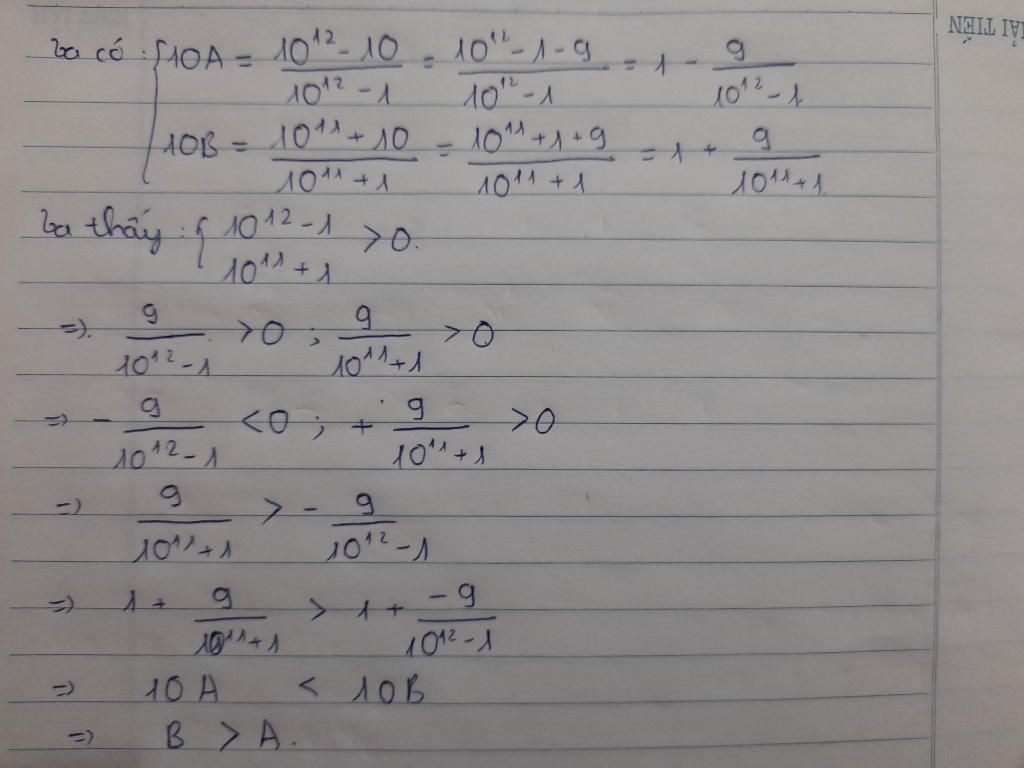 Ta có : { 10A = \frac{10^{12} - 10}{10^{12} - 1} = \frac{10^{12} - 1 - 9}{10^{12} - 1} = 1 - \frac{9}{10^{12} - 1}
10B = \frac{10^{11} + 10}{10^{11} + 1} = \frac{10^{11} + 1 + 9}{10^{11} + 1} = 1 + \frac{9}{10^{11} + 1}
Ta thấy : { 10^{12} - 1
10^{11} + 1 > 0.
=> \frac{9}{10^{12} - 1} > 0 ; \frac{9}{10^{11} + 1} > 0
=> - \frac{9}{10^{12} - 1} < 0 ; + \frac{9}{10^{11} + 1} > 0
=> \frac{9}{10^{11} + 1} > - \frac{9}{10^{12} - 1}
=> 1 + \frac{9}{10^{11} + 1} > 1 + \frac{-9}{10^{12} - 1}
=> 10A < 10B
=> B > A.
TIẾN